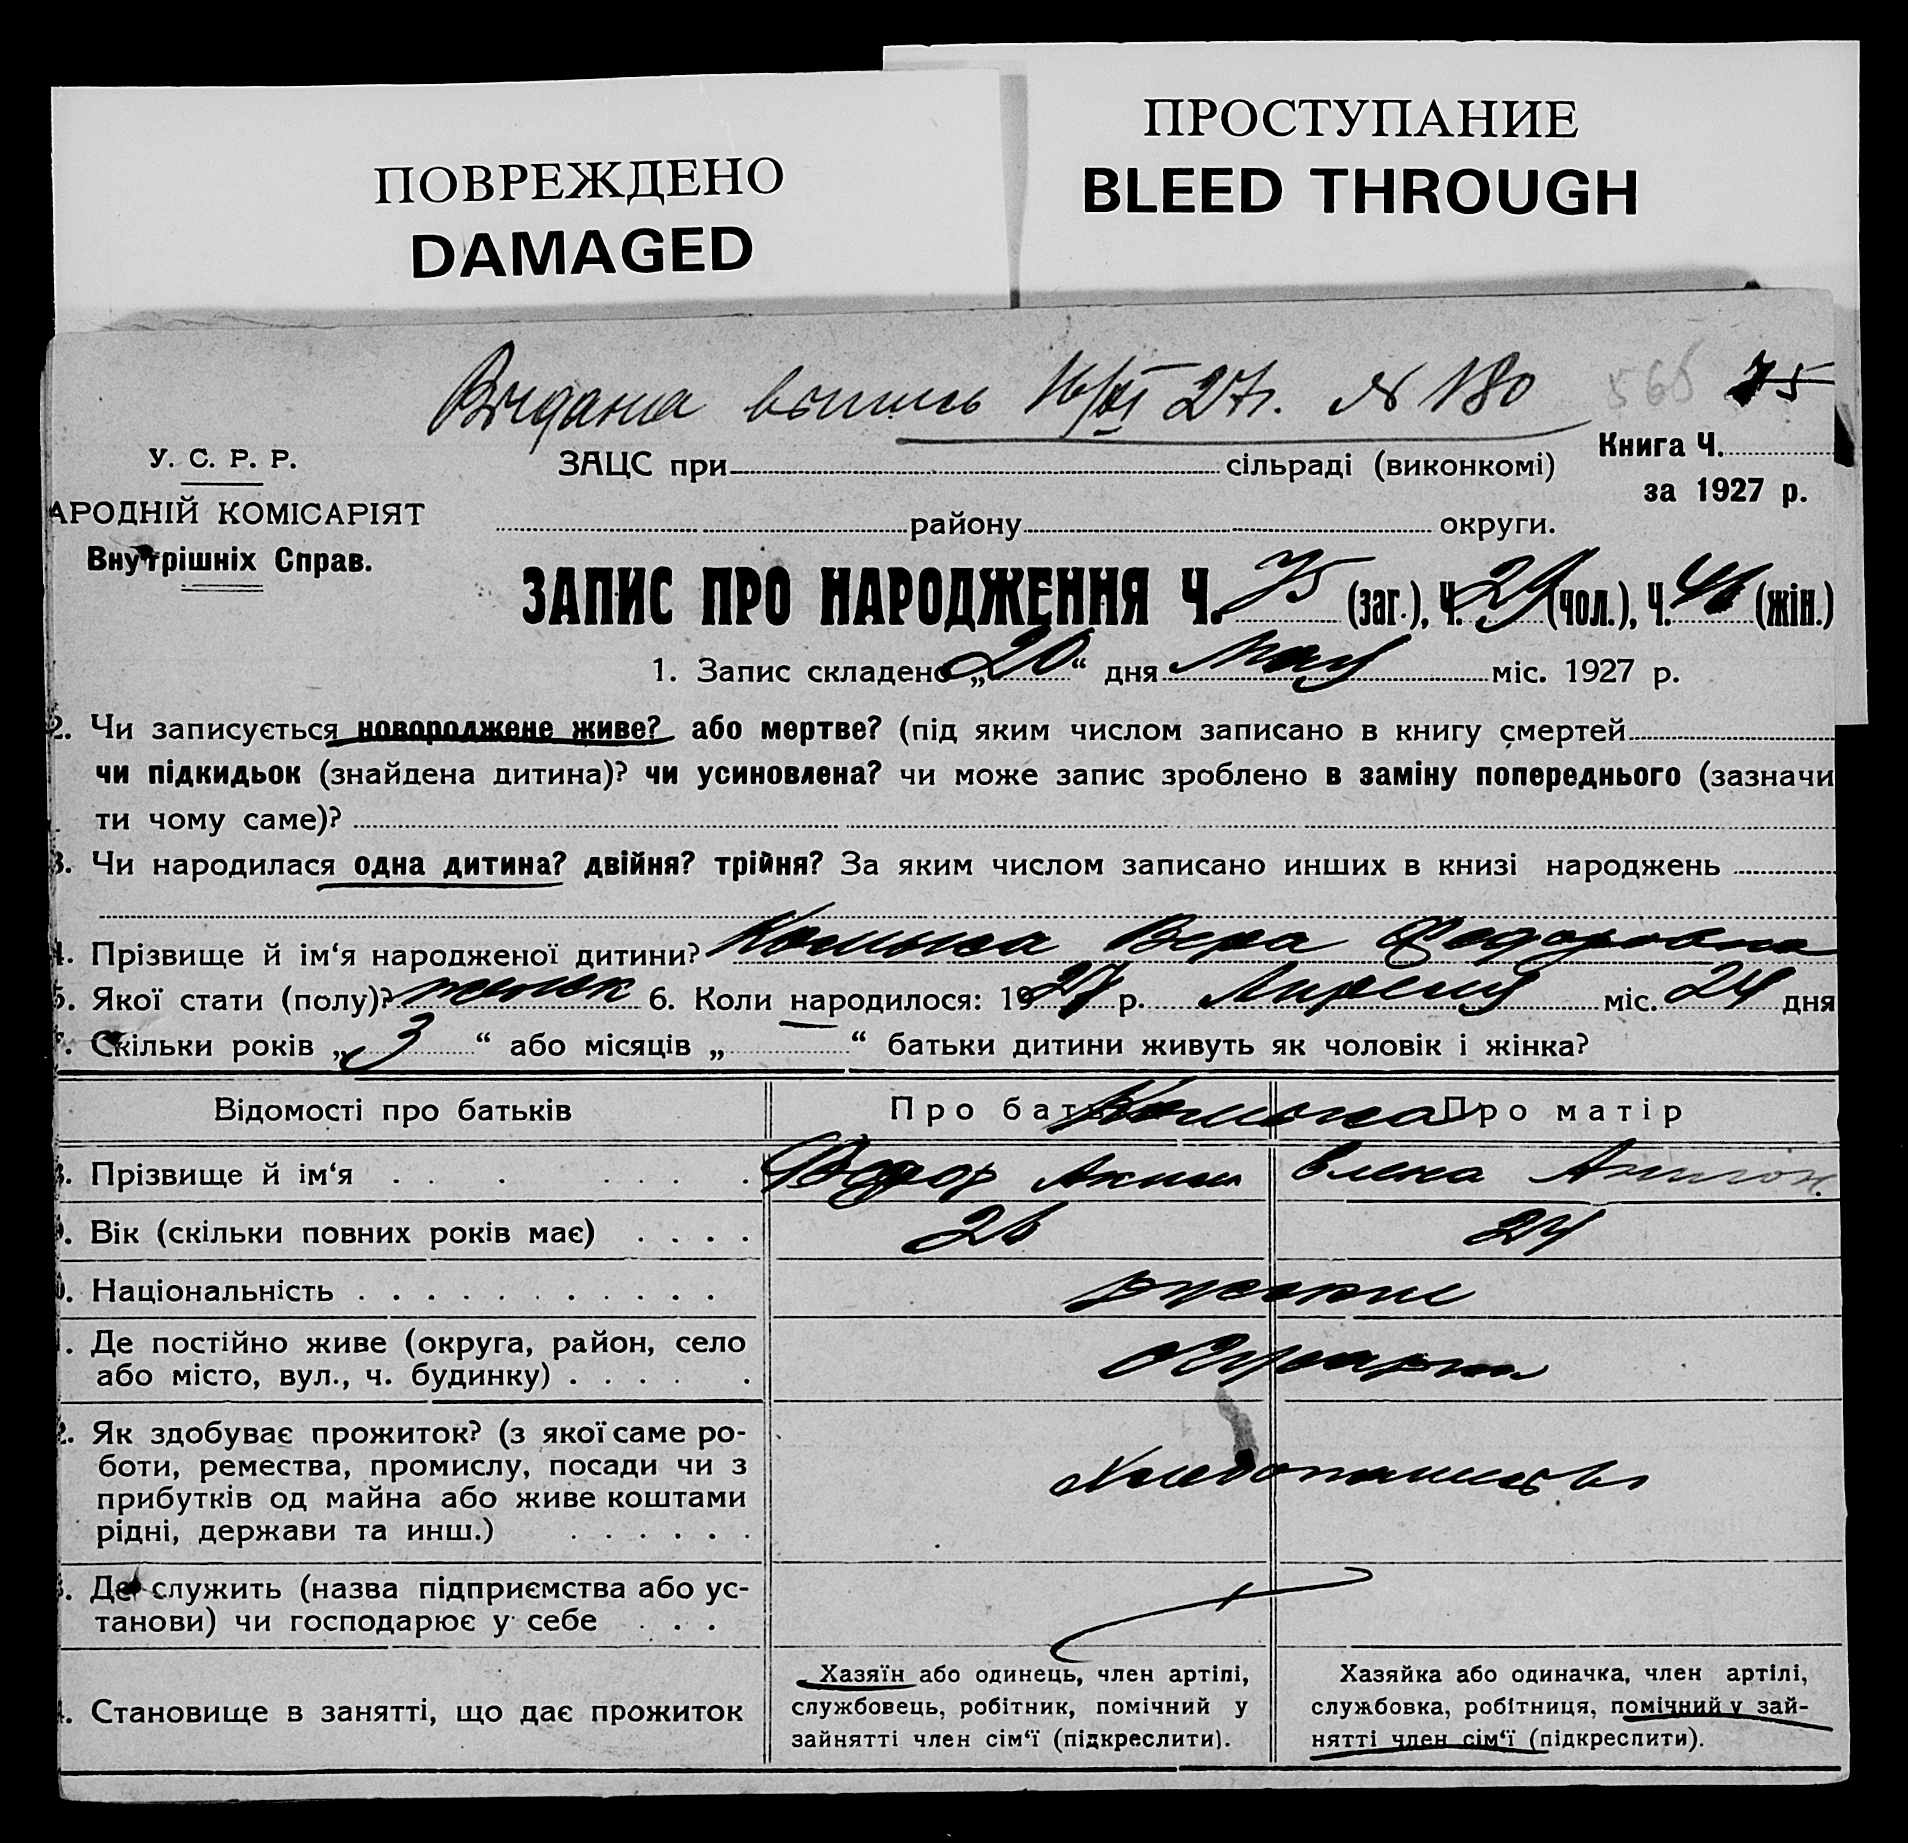 ПОВРЕЖДЕНО
DAMAGED
ПРОСТУПАНИЕ
BLEED THROUGH
Видана выпись 16/VI 27г. № 180
75
У. С. Р. Р.
АРОДНІЙ КОМІСАРІЯТ
Внутрішніх Справ.
ЗАЦС при сільраді (виконкомі)
Книга Ч.
за 1927 р.
району округи.
ЗАПИС ПРО НАРОДЖЕННЯ Ч. 75 (заг.), Ч. 29 (чол.), Ч. 46 (жін.)
1. Запис складено „20“ дня мая міс. 1927 р.
2. Чи записується новороджене живе? або мертве? (під яким числом записано в книгу смертей
чи підкидьок (знайдена дитина)? чи усиновлена? чи може запис зроблено в заміну попереднього (зазначи
ти чому саме)?
3. Чи народилася одна дитина? двійня? трійня? За яким числом записано инших в книзі народжень
4. Прізвище й ім‘я народженої дитини? Вера Федоровна
5. Якої стати (полу)? женск 6. Коли народилося: 1927 р. Апреля міс. 24 дня
7. Скільки років „3“ або місяців „ “ батьки дитини живуть як чоловік і жінка?
Відомості про батьків
Про батька
Про матір
Прізвище й ім‘я Федор Аким Елена Антон.
Вік (скільки повних років має) 26 24
Національність
Де постійно живе (округа, район, село
або місто, вул., ч. будинку)
Як здобуває прожиток? (з якої саме ро-
боти, ремества, промислу, посади чи з
прибутків од майна або живе коштами
рідні, держави та инш.)
Хлебопашество
Де служить (назва підприємства або ус-
танови) чи господарює у себе
Становище в занятті, що дає прожиток
Хазяїн або одинець, член артілі,
службовець, робітник, помічний у
зайнятті член сім‘ї (підкреслити).
Хазяйка або одиначка, член артілі,
службовка, робітниця, помічний у зай-
нятті член сім‘ї (підкреслити).